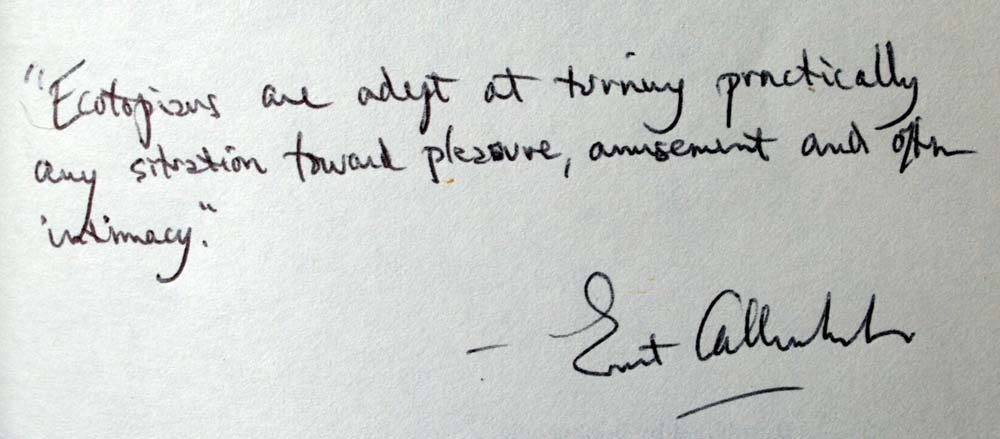 "Ecotopians are adept at turning practically
any situation toward pleasure, amusement and often
intimacy."
– Ernest Callenbach